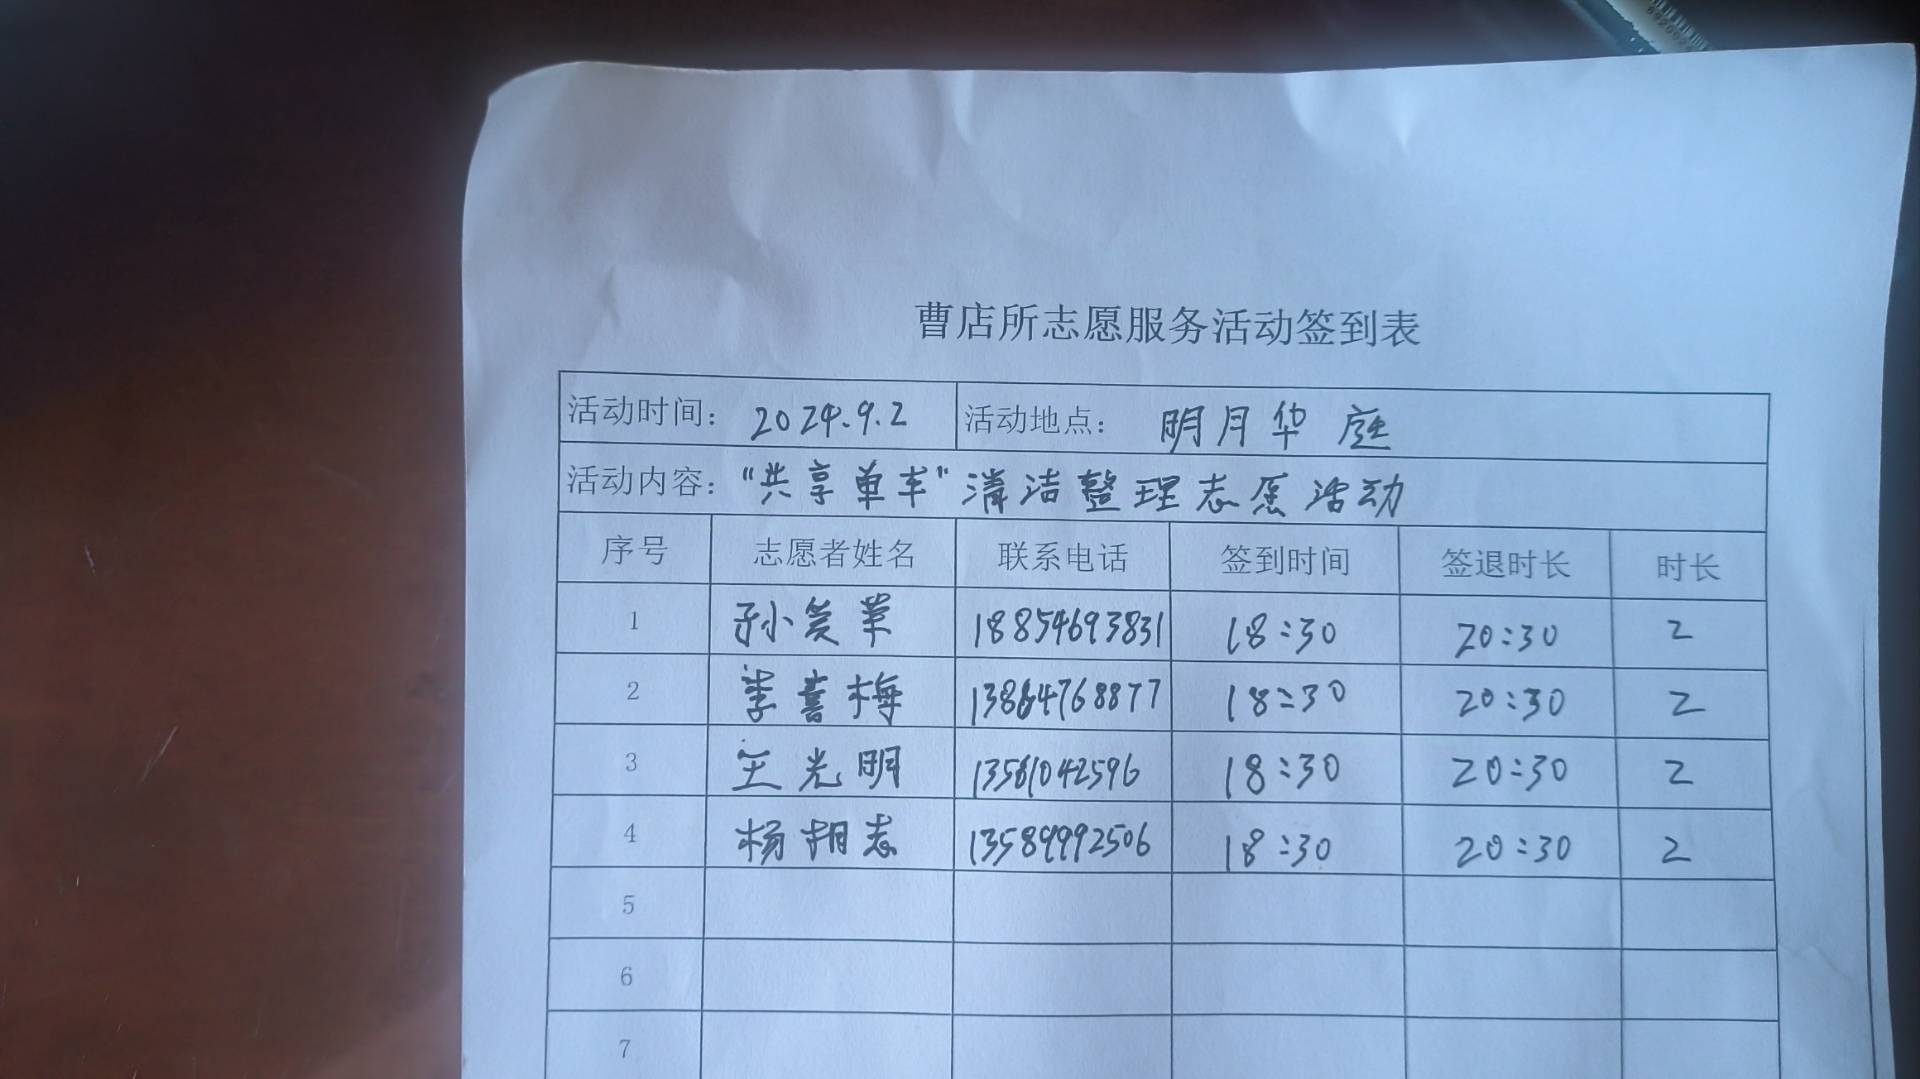 曹店所志愿服务活动签到表
活动时间: 2024.9.2 活动地点: 明月华庭
活动内容: "共享单车"清洁整理志愿活动
序号 志愿者姓名 联系电话 签到时间 签退时长 时长
1 孙笑苹 18854693831 18:30 20:30 2
2 李喜梅 13864768877 18:30 20:30 2
3 王光明 13561042596 18:30 20:30 2
4 杨相志 13589992506 18:30 20:30 2
5
6
7